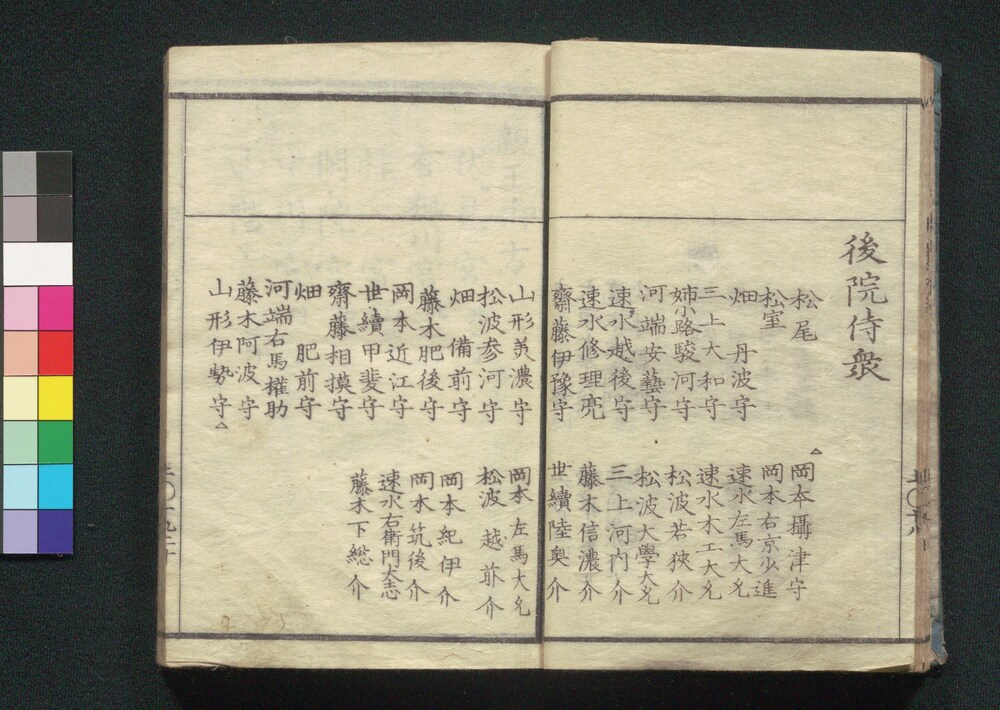 後院侍衆
松尾
松室
畑　丹波守
三上大和守
姉小路駿河守
河端安藝守
速水越後守
速水修理亮
齋藤伊豫守
△岡本攝津守
岡本右京少進
速水左馬大允
速水木工大允
松波若狹介
松波大學大允
三上河内介
藤木信濃介
世續陸奥介
山形美濃守
松波参河守
畑　備前守
藤木肥後守
岡本近江守
世續甲斐守
齋藤相摸守
畑　肥前守
河端右馬權助
藤木阿波守
山形伊勢守△
岡本左馬大允
松波越前介
岡本紀伊介
岡本筑後介
速水右衛門大志
藤木下総介